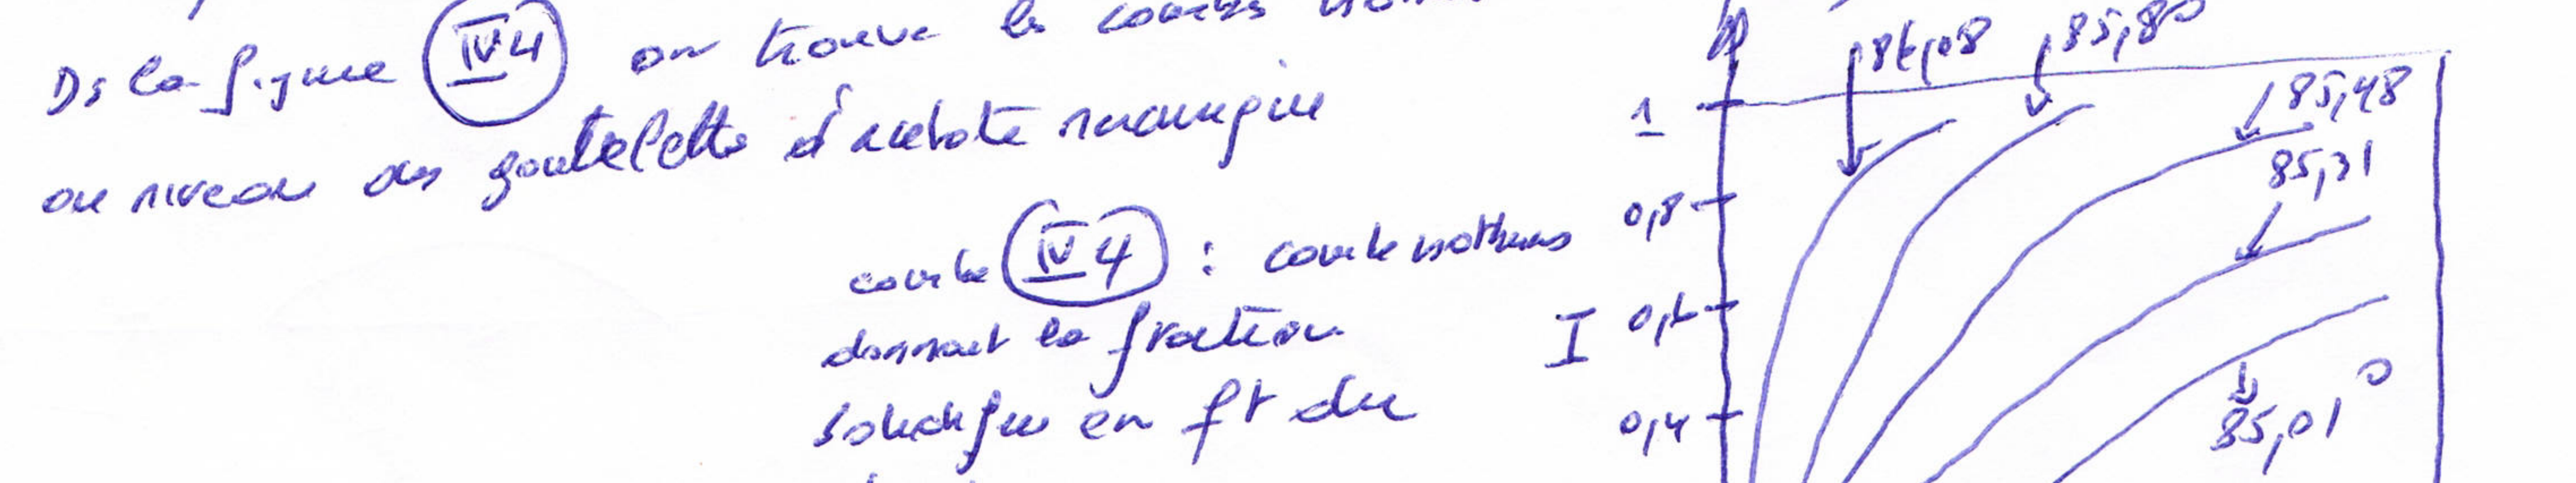 Ds la figure IV4 on trouve les courbes
au niveau des gouttelettes d'acétate mercurique
courbe IV4 : courbe isothermes
donnant la fraction
solidifiée en ft du
1
0,8
0,6
0,4
I
86,08
85,80
85,48
85,31
85,01
0